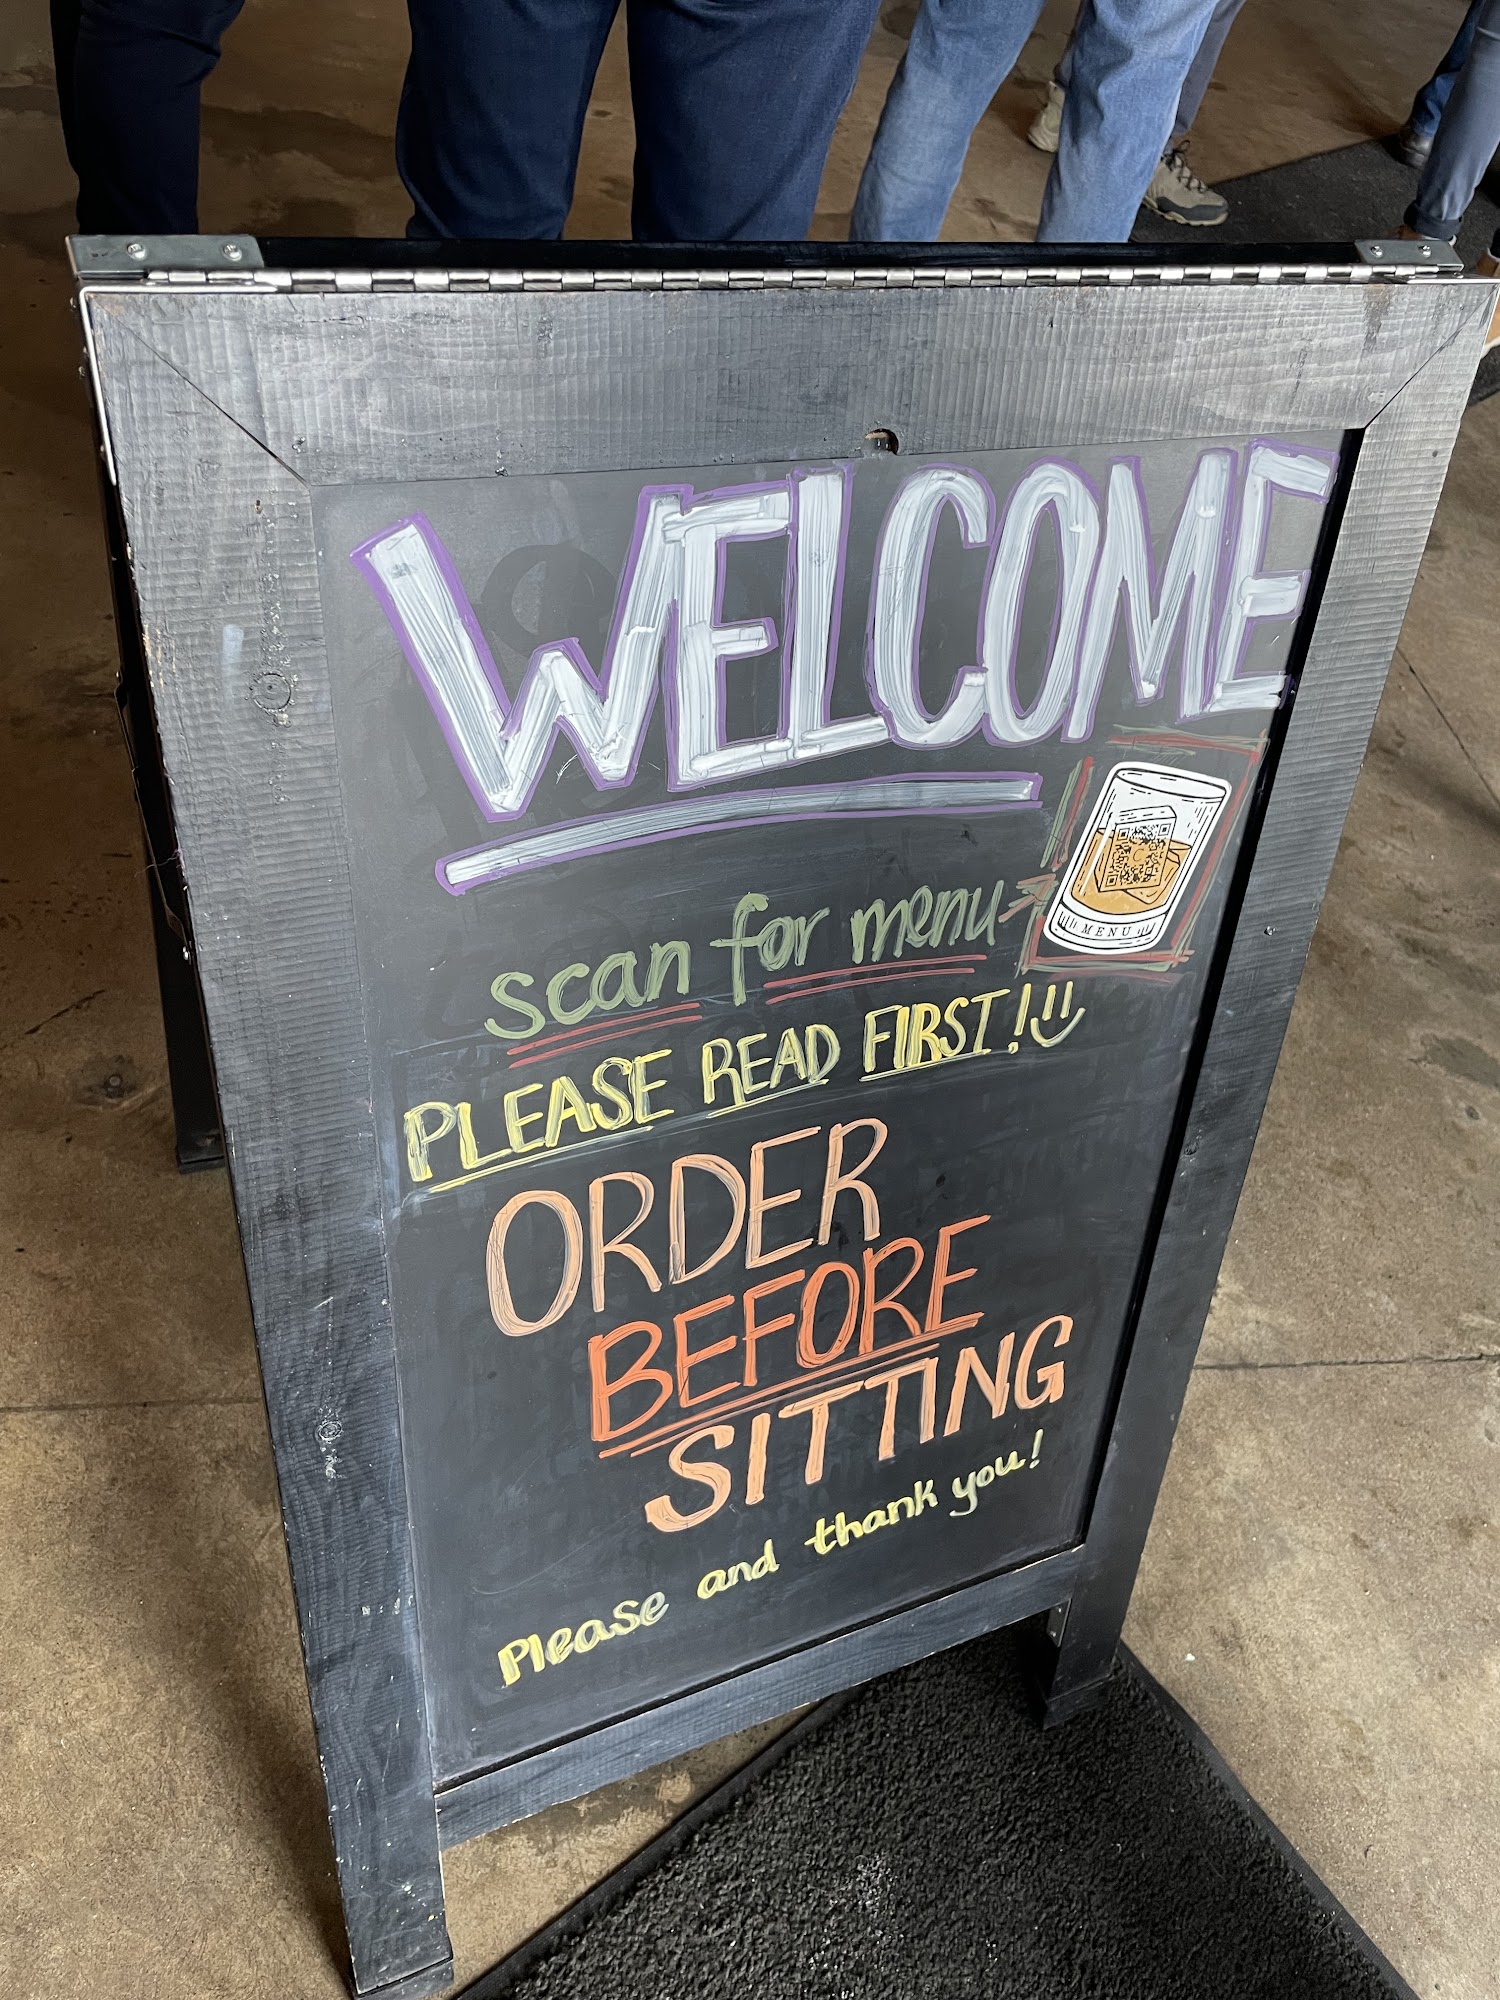 WELCOME
scan for menu
MENU
PLEASE READ FIRST!
ORDER
BEFORE
SITTING
Please and thank you!